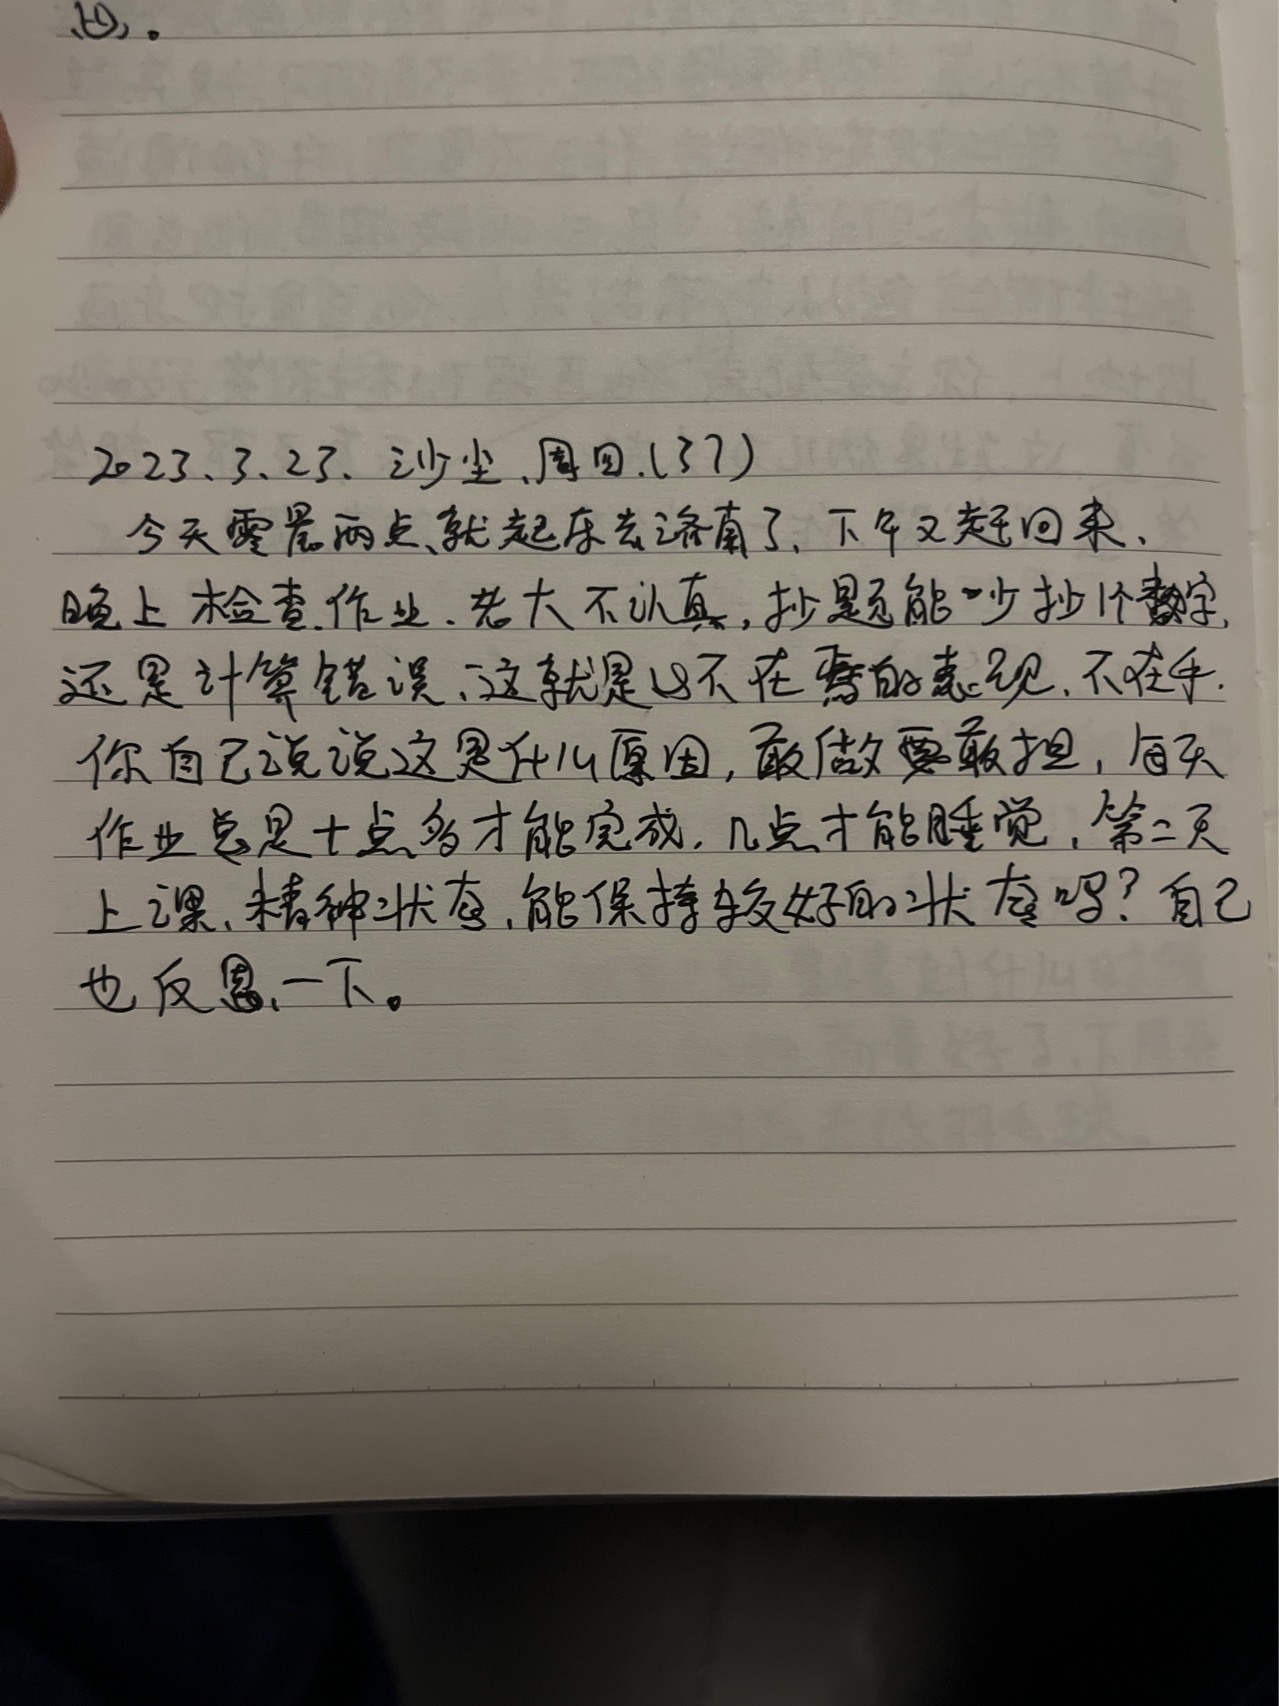 2023.3.23. 沙尘、周四.(37)
今天零晨两点、就起床去济南了、下午又赶回来、
晚上检查作业、老大不认真,抄题能少抄1个数字,
还是计算错误、这就是心不在焉的表现、不在乎.
你自己说说这是什么原因,敢做要敢担,每天
作业总是十点多才能完成、几点才能睡觉,第二天
上课、精神状态、能保持较好的状态吗?自己
也反思一下。